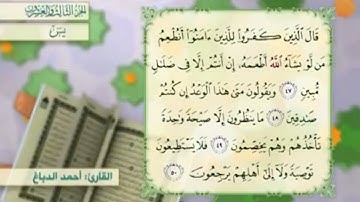 الجزء الثالث والعشرون
يس
قَالَ الَّذِينَ كَفَرُوا لِلَّذِينَ ءَامَنُوا أَنُطْعِمُ
مَن لَّوْ يَشَاءُ اللَّهُ أَطْعَمَهُ إِنْ أَنتُمْ إِلَّا فِي ضَلَالٍ
مُّبِينٍ ٤٧ وَيَقُولُونَ مَتَى هَذَا الْوَعْدُ إِن كُنتُمْ
صَادِقِينَ ٤٨ مَا يَنظُرُونَ إِلَّا صَيْحَةً وَاحِدَةً
تَأْخُذُهُمْ وَهُمْ يَخِصِّمُونَ ٤٩ فَلَا يَسْتَطِيعُونَ
تَوْصِيَةً وَلَا إِلَى أَهْلِهِمْ يَرْجِعُونَ ٥٠
القارئ: أحمد الدباغ